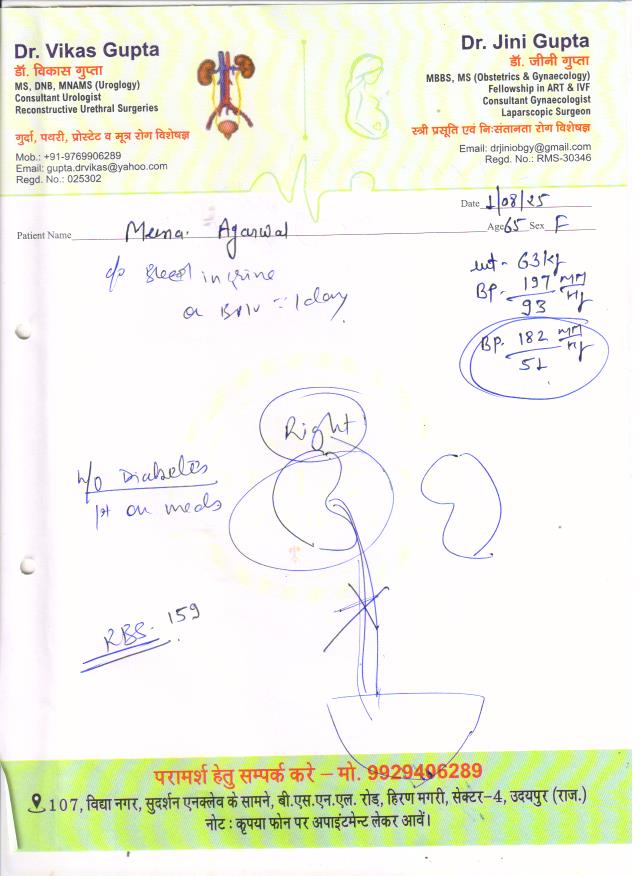 Dr. Vikas Gupta
डॉ. विकास गुप्ता
MS, DNB, MNAMS (Uroglogy)
Consultant Urologist
Reconstructive Urethral Surgeries
गुर्दा, पथरी, प्रोस्टेट व मूत्र रोग विशेषज्ञ
Mob.: +91-9769906289
Email: gupta.drvikas@yahoo.com
Regd. No.: 025302
Dr. Jini Gupta
डॉ. जीनी गुप्ता
MBBS, MS (Obstetrics & Gynaecology)
Fellowship in ART & IVF
Consultant Gynaecologist
Laparscopic Surgeon
स्त्री प्रसूति एवं निःसंतानता रोग विशेषज्ञ
Email: drjiniobgy@gmail.com
Regd. No.: RMS-30346
Date 1/08/25
Patient Name Meena Agarwal Age 65 Sex F
c/o Blood in urine
1 day
wt- 63kg
BP- 197/93 mm Hg
BP- 182/51 mm Hg
Right
h/o Diabetes
on meds
RBS- 159
परामर्श हेतु सम्पर्क करे – मो. 9929406289
107, विद्या नगर, सुदर्शन एनक्लेव के सामने, बी.एस.एन.एल. रोड, हिरण मगरी, सेक्टर-4, उदयपुर (राज.)
नोट : कृपया फोन पर अपाइंटमेन्ट लेकर आवें।